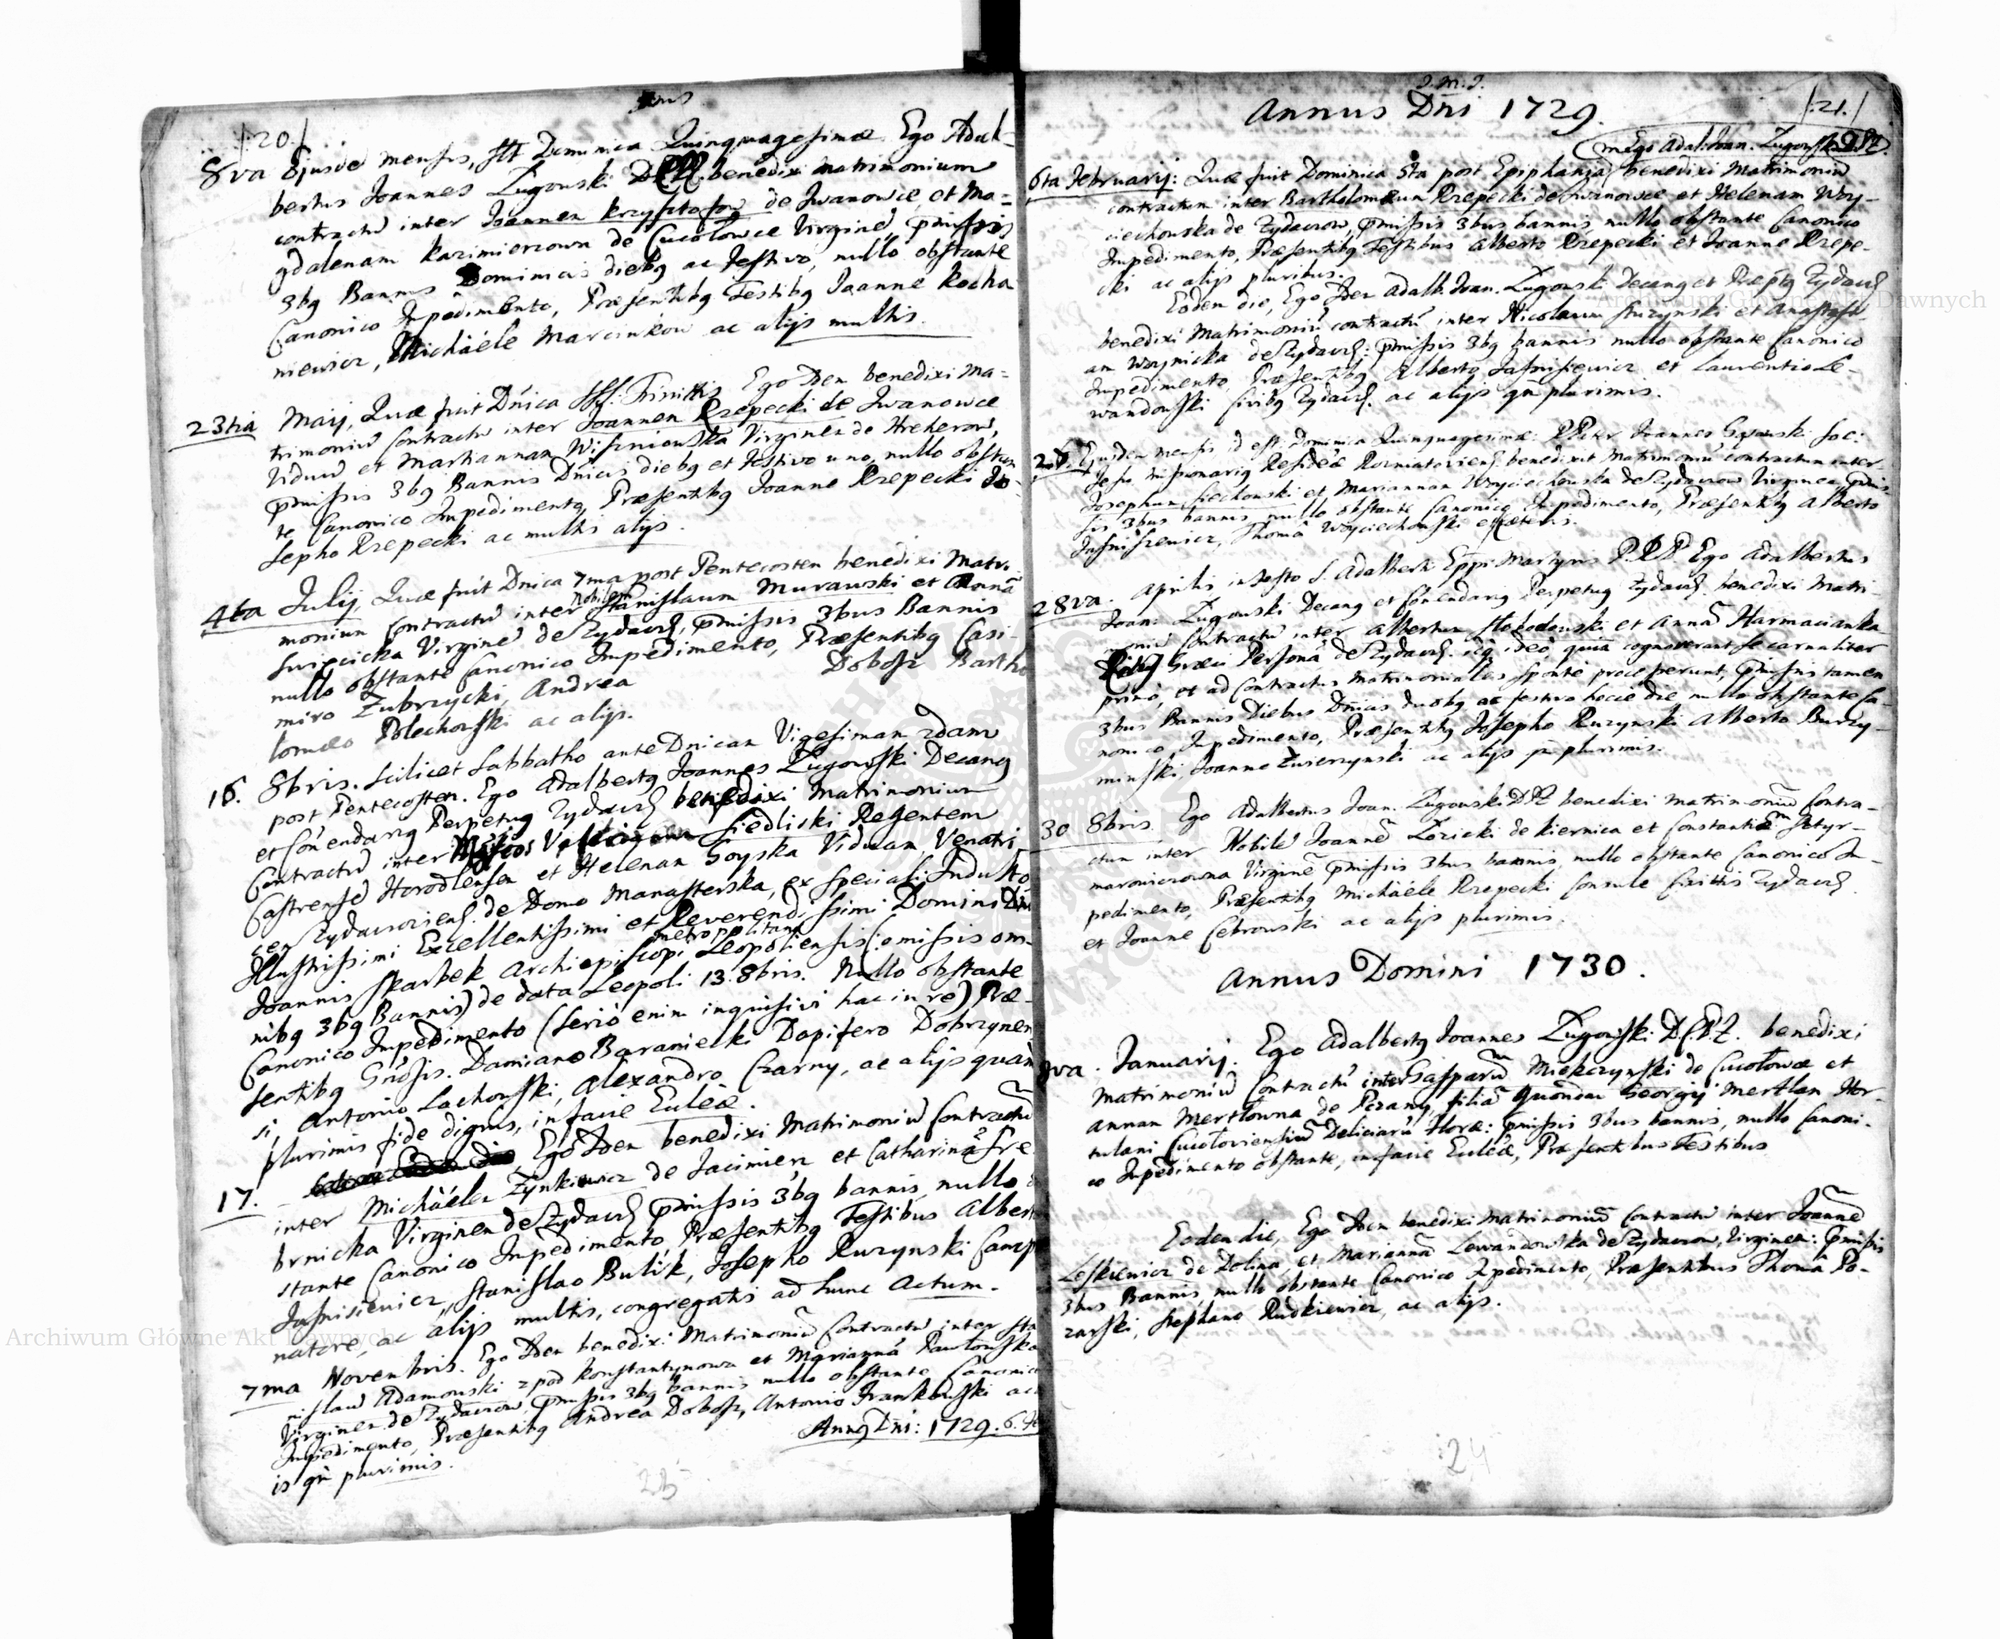 |:20:|
8va Ejusdē mensis, est Dominica Quinquagesimæ Ego Adal-
bertus Joannes Zugowski benedixi matrimonium
contractū inter Joannem Krzysztofow de Iwanowce et Ma=
gdalenam Kazimierzowa de Cucołowce Virginē pmissis
3bg Bannis Dominicis diebg ac Festivo, nullo obstante
Canonico Impedimento, Præsentibg Testibg Joanne Kocha
niewicz, Michäele Marcinkow ac alijs multis.
23tia Maij, Quæ fuit Dnica SS: Trinittis Ego Idem benedixi Ma=
trimoniū Contractū inter Joannem Rzepecki de Iwanowce
Viduū et Mariannam Wiszniowska Virginem de Hrehorow,
pmissis 3bg Bannis Dnicis diebg et Festivo uno, nullo obstan
te Canonico Impedimento, Præsentibg Joanne Rzepecki Jo
sepho Rzepecki ac multis alijs.
4ta Julij, Quæ fuit Dnica 7ma post Pentecosten benedixi Matri
monium Contractū inter Nobilem Stanislaum Murawski et Annā
Swięcicka Virginē de Zydacz, pmissis 3bus Bannis
nullo obstante Canonico Impedimento, Præsentibg Casi-
miro Zubrzycki, Andrea Dobosz Bartho
lomeo Polechoński ac alijs.
16. 8bris. Scilicet Sabbatho ante Dnicam Vigesimam 2dam
post Pentecosten. Ego Adalbertg Joannes Zugowski Decang
et Comendarg Perpetug Zydacz benedixi Matrimonium
Contractū inter Siedliski Regentem
Castrensē Horodlensem et Helenam Goyska Viduam Venatri
cem Zydacoviens. de Domo Manasterska, ex speciali Indulto
Illustrissimi Excellentissimi et Reverendissimi Domini Dni
Joannis Skarbek Archiepiscopi Metropolitani Leopoliensis (omissis om-
nibg 3bg Bannis) de data Leopoli 13. 8bris. Nullo obstante
Canonico Impedimento (serio enim inquisivi hac in re) Præ-
sentibg Gnosis. Damiano Baraniecki Dapifero Dobrzynen
si, Antonio Lachowski, Alexandro Czarny, ac alijs quam
plurimis fide dignis, in facie Ecclēæ.
17. Ego Idem benedixi Matrimoniū Contractū
inter Michäelem Zynkiewicz de Jacimierz et Catharinā Sre
brnicka Virginem de Zydacz pmissis 3bg bannis, nullo
stante Canonico Impedimento Præsentibg Testibus Albert
Jasnisiewicz, Stanislao Bulik, Josepho Ruzynski
natore, ac alijs multis, congregatis ad hunc actum.
7ma Novembris. Ego Idem benedixi Matrimoniū Contractū inter Sta
nislaū Adamowski z pod Konstantynowa et Mariannā Pawlowska
Virginem de Zydaczow, pmissis 3bg bannis nullo obstante Canonico
Impedimento, Præsentibg Andrea Dobosz, Antonio Frankowski ac
is qm plurimis.
Anng Dni: 1729. 6.
25
J. M. J.
Annus Dni 1729.
|:21.|
Ego Adal: Joan. Zugowski
6ta Februarij: Quæ fuit Dominica 5ta post Epiphaniā, benedixi Matrimoniū
contractum inter Bartholomæum Rzepecki de Iwanowce et Helenam Woy-
ciechowska de Zydaczow, pmissis 3bus bannis, nullo obstante Canonico
Impedimento, Præsentibg Testibus Alberto Rzepecki et Joanne Rzepe-
cki ac alijs pluribus.
Eodem die, Ego Idem Adalb. Joan. Zugowski Decang et Præptg Zydacz
benedixi Matrimoniū contractū inter Nicolaum Ruzynski et Anastasi-
am Woynicka de Zydacz: pmissis 3bg bannis nullo obstante Canonico
Impedimento, Præsentibg Alberto Jasnisiewicz et Laurentio Le-
wandowski Civibg Zydacz. ac alijs qm plurimis.
Ejusdem mensis id est Dominica Quinquagesimæ: Pater Joannes Gąsowski Soc:
Jesu Missionarig Residēæ Rozniatoviens. benedixit Matrimoniū contractum inter
Josephum Ciechowski et Mariannam Woyciechowska de Zydaczow Virginem pmis-
sis 3bus bannis nullo obstante Canonico Impedimento, Præsentibg Alberto
Jasniszewicz, Thoma Woyciechowski et cæteris.
28va. Aprilis in Festo S. Adalberti Eppi Martyris P. R. P. Ego Adalbertus
Joan. Zugowski Decang et Comendarg Perpetug Zydacz benedixi Matri-
moniū Contractū inter Albertum Slobodowski et Annā Harmacianka
Ritg Græci Personā de Zydacz. ideo, quia cognoverant se carnaliter
primo, et ad contractus matrimoniales sponte processerunt, pmissis tamen
3bus Bannis Diebus Dnicis duobg ac festivo hocce die nullo obstante Ca-
nonico Impedimento, Præsentibg Josepho Ruzynski Alberto Burzy-
minski, Joanne Zwierzynski ac alijs qm plurimis.
30 8bris. Ego Adalbertus Joan. Zugowski benedixi matrimoniū Contra-
ctum inter Nobilē Joannē Lozicki de Kiernica et Constantiam Setyr-
marowiczowna Virginē pmissis 3bus bannis, nullo obstante Canonico Im-
pedimento, Præsentibg Michäele Rzepecki Consule Civittis Zydacz.
et Joanne Cebrowski ac alijs plurimis.
Annus Domini 1730.
Januarij. Ego Adalbertg Joannes Zugowski D.C.P.Z. benedixi
Matrimoniū Contractū inter Gasparū Miekczynski de Cucolowce et
Annam Mertlowna de Pczany, filiā quondam Georgij Mertlan Hor-
tulani Cucoloviensiū Deliciarū Floræ: pmissis 3bus bannis, nullo Canoni-
co Impedimento obstante, in facie Ecclēæ, Præsentibus Testibus
Eodem die, Ego Idem benedixi Matrimoniū Contractū inter Joannē
Leskiewicz de Dolina, et Mariannā Lewandowska de Zydaczow, Virginem: pmissis
3bus Bannis, nullo obstante Canonico Impedimento, Præsentibus Thoma Po-
zarski, Stephano Rudkiewicz, ac alijs.
24
Archiwum Główne Akt Dawnych
Archiwum Główne Akt Dawnych